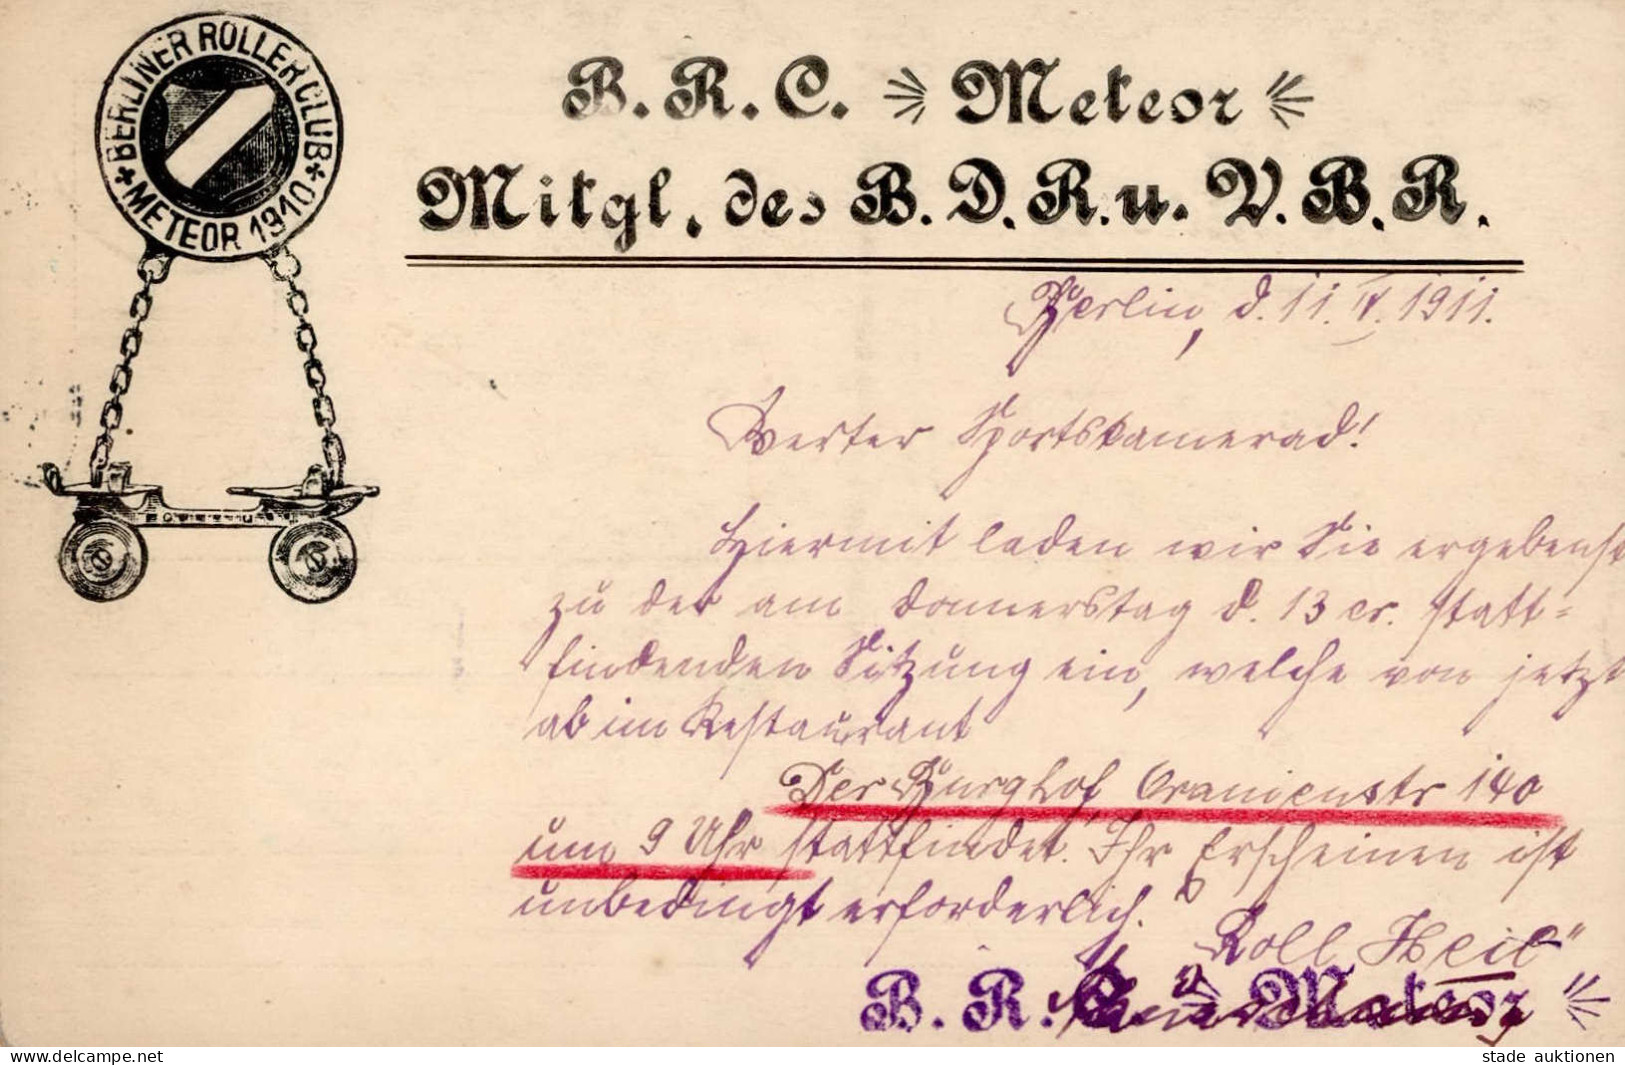 BERLINER ROLLER CLUB
METEOR 1910
B. R. C. Meteor
Mitgl. des B. D. R. u. V. B. R.
Berlin, d. 11. IV. 1911.
Werter Sportskamerad!
Hiermit laden wir Sie ergebenst
zu der am Donnerstag d. 13 cr. statt-
findenden Sitzung ein, welche von jetzt
ab im Restaurant
Der Burghof Oranienstr 140
um 9 Uhr stattfindet. Ihr Erscheinen ist
unbedingt erforderlich.
"Roll Heil"
B. R. C. Meteor
stade auktionen